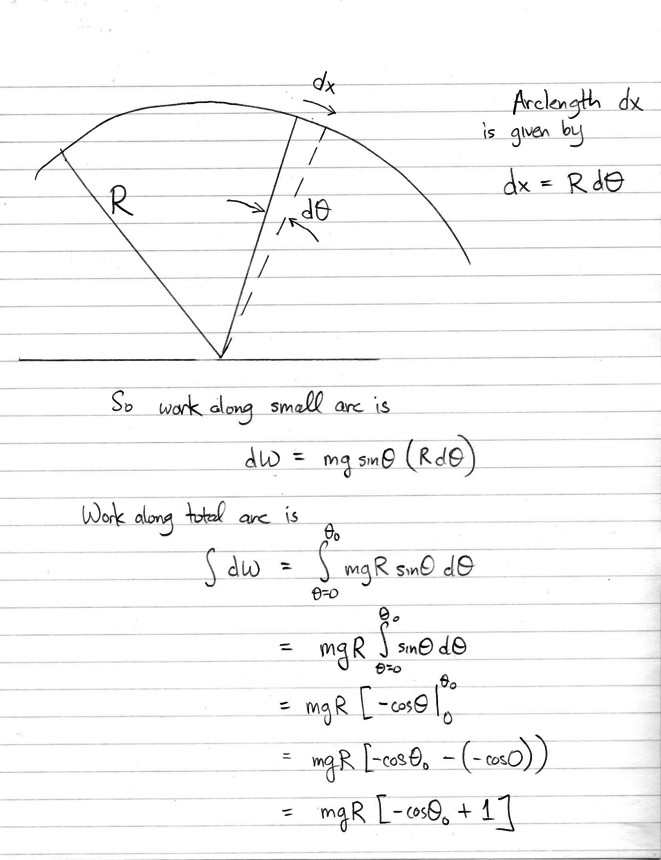 dx
Arclength dx
is given by
dx = R dθ
R
dθ
So work along small arc is
dW = mg sinθ (R dθ)
Work along total arc is
∫ dW = ∫_{θ=0}^{θ₀} mgR sinθ dθ
= mgR ∫_{θ=0}^{θ₀} sinθ dθ
= mgR [-cosθ|₀^{θ₀}
= mgR [-cosθ₀ - (-cos0))
= mgR [-cosθ₀ + 1]